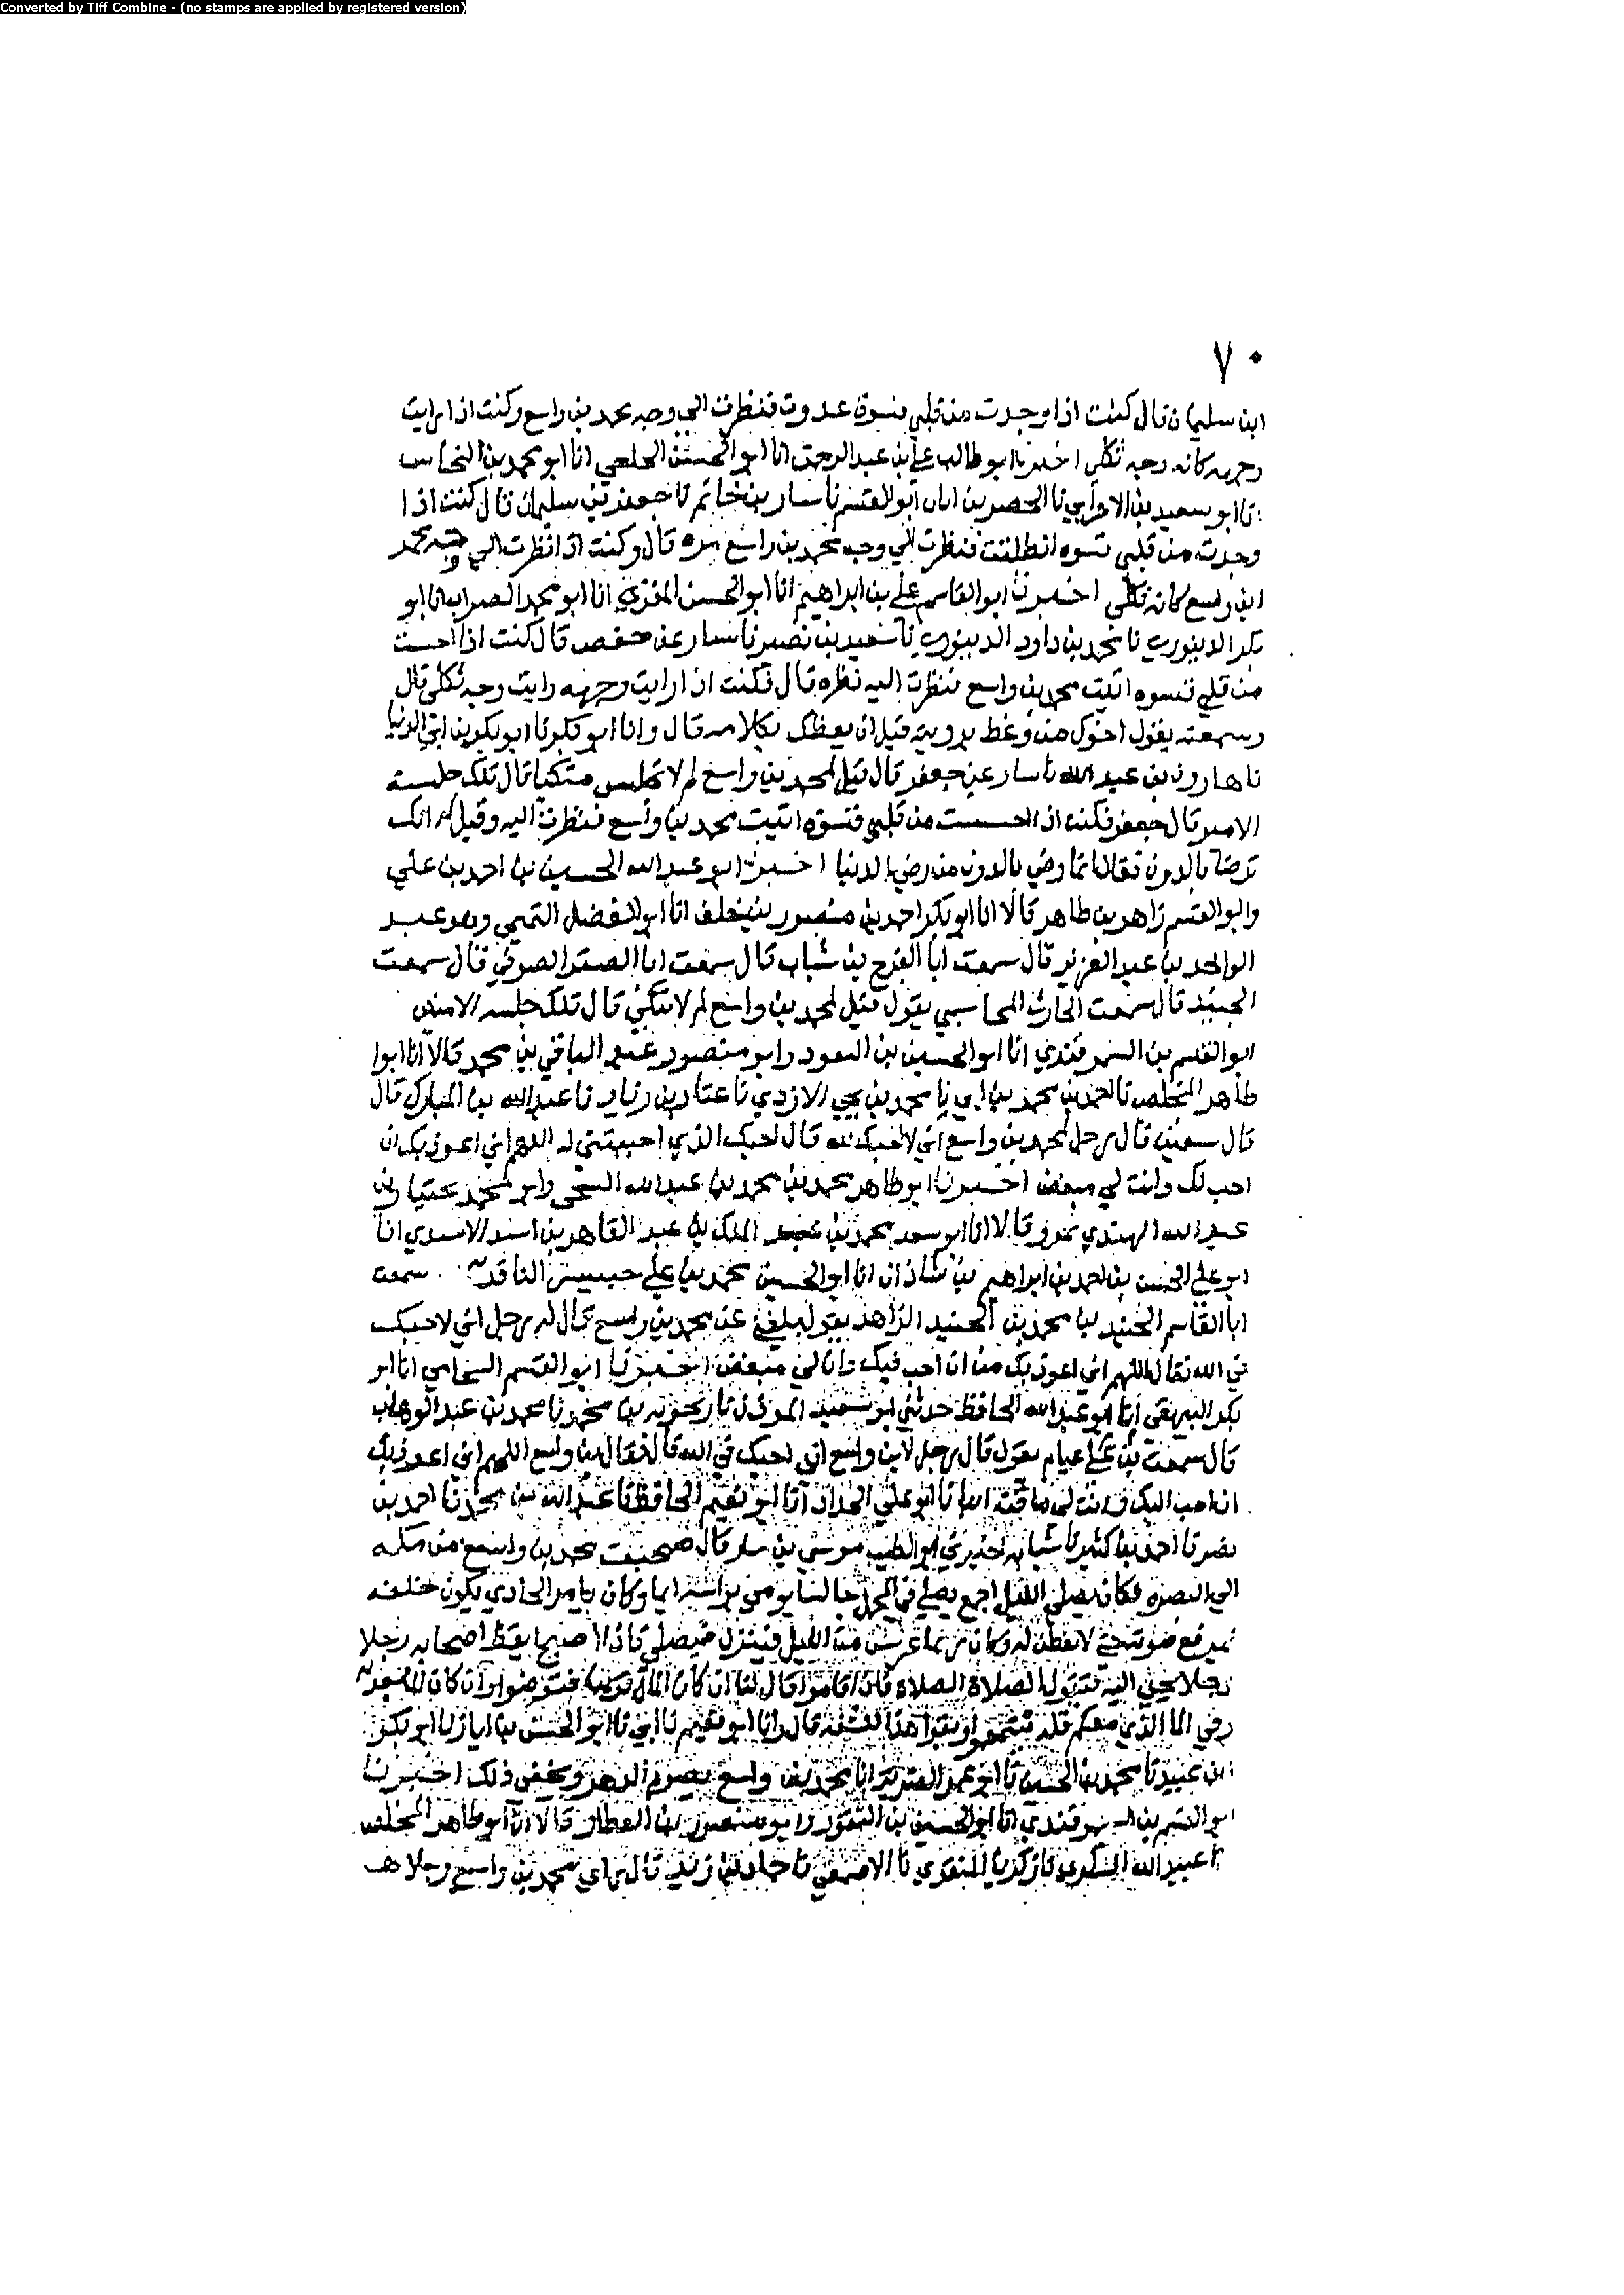 Converted by Tiff Combine - (no stamps are applied by registered version)
٧٠
ابن سليمان قال كنت اذا وجدت من قلبي قسوة غدوت فنظرت الى وجه محمد بن واسع وكنت اذا رايت
وجهه كانه وجه ثكلى اخبرنا ابو طالب علي بن عبد الرحمن انا ابو الحسن الخلعي انا ابو محمد بن النحاس
انا ابو سعيد بن الاعرابي نا الخضر بن ابان ابو القسم نا سيار بن حاتم نا جعفر بن سليمان قال كنت اذا
وجدت من قلبي قسوه انطلقت فنظرت الي وجه محمد بن واسع مره قال وكنت اذا نظرت الي وجه محمد
ابن واسع كانه ثكلى اخبرنا ابو القاسم علي بن ابراهيم انا ابو الحسن المقري انا ابو محمد الضراب انا ابو
بكر الدينوري نا محمد بن داود الدينوري نا سعيد بن نصير نا سيار عن جعفر قال كنت اذا احسست
من قلبي قسوه اتيت محمد بن واسع فنظرت اليه نظره قال فكنت اذا رايت وجهه رايت وجه ثكلى قال
وسمعته يقول اخوك من وعظك برويته قبل ان يعظك بكلامه قال وانا ابو بكر نا ابو بكر بن ابي الدنيا
نا هارون بن عبد الله نا سيار عن جعفر قال قيل لمحمد بن واسع لم لا تجلس متكيا قال تلك جلسة
الامنين قال جعفر فكنت اذا احسست من قلبي قسوة اتيت محمد بن واسع فنظرت اليه وقيل له انك
ترضا بالدون فقال انما رضي بالدون من رضي بالدنيا اخبرنا ابو عبد الله الحسين بن احمد بن علي
وابو القسم زاهر بن طاهر قالا انا ابو بكر احمد بن منصور بن خلف انا ابو الفضل التميمي وهو عبد
الواحد بن عبد العزيز قال سمعت ابا الفرج بن شباب قال سمعت ابا الصقر الصوفي قال سمعت
الجنيد قال سمعت الحارث المحاسبي يقول قيل لمحمد بن واسع لم لا تتكئ قال تلك جلسه الامنين
ابو القسم بن السمرقندي انا ابو الحسين بن النقور وابو منصور عبد الباقي بن محمد قالا انا ابو
طاهر المخلص نا احمد بن محمد بن ابي نا محمد بن يحيى الازدي نا عتاب بن زياد نا عبد الله بن المبارك قال
قال سفين قال رجل لمحمد بن واسع اني لاحبك لله قال احبك الذي احببتني له اللهم اني اعوذ بك ان
احب لك وانت لي مبغض اخبرنا ابو طاهر محمد بن محمد بن عبد الله السنجي وابو محمد بختيار بن
عبد الله الهندي بمرو قالا انا ابو سعد محمد بن عبد الملك بن عبد القاهر بن اسد الاسدي انا
ابو علي الحسن بن احمد بن ابراهيم بن شاذان انا ابو الحسين محمد بن علي حبيش الناقد سمعت
ابا القاسم الجنيد بن محمد بن الجنيد الزاهد يقول بلغني عن محمد بن واسع قال له رجل اني لاحبك
في الله فقال اللهم اني اعوذ بك من ان احب فيك وانا لي مبغض اخبرنا ابو القسم الشحامي انا ابو
بكر البيهقي انا ابو عبد الله الحافظ حدثني ابو سعيد المؤذن نا زنجويه بن محمد نا محمد بن عبد الوهاب
قال سمعت بن علي عثام يقول قال رجل لابن واسع اني احبك في الله قال فقال بن واسع اللهم اني اعوذ بك
ان احب اليك وانت لي ماقت انبانا ابو علي الحداد انا ابو نعيم الحافظ نا عبد الله بن محمد نا احمد بن
نصر نا احمد بن كثير نا شبابه اخبرني ابو الطيب موسى بن يسار قال صحبت محمد بن واسع من مكه
الي البصره فكان يصلي الليل اجمع يصلي في المحمل جالسا يومي براسه ايما وكان يامر الحادي يكون خلفه
فيرفع صوته حتى لا يفطن له وكان ربما عرس من الليل فينزل فيصلي فاذا اصبح ايقظ اصحابه رجلا
رجلا يجي اليه فيقول الصلاة الصلاه فاذا قاموا قال لنا ان كان الما قريبا فتوضوا وان كان الما بعيد
وفي الما الذي معكم قله فتيمموا وابقوا هذا للشفه قال وانا ابو نعيم نا ابي نا ابو الحسن بن ابان نا ابو بكر
ابن عبيد نا محمد بن الحسين نا ابو عمر الضرير انا محمد بن واسع يصوم الدهر ويخفي ذلك اخبرنا
ابو القسم بن السمرقندي انا ابو الحسين بن النقور وابو منصور بن العطار قالا انا ابو طاهر المخلص
نا عبيد الله السكري نا زكريا المنقري نا الاصمعي نا حماد بن زيد قال راى محمد بن واسع رجلا